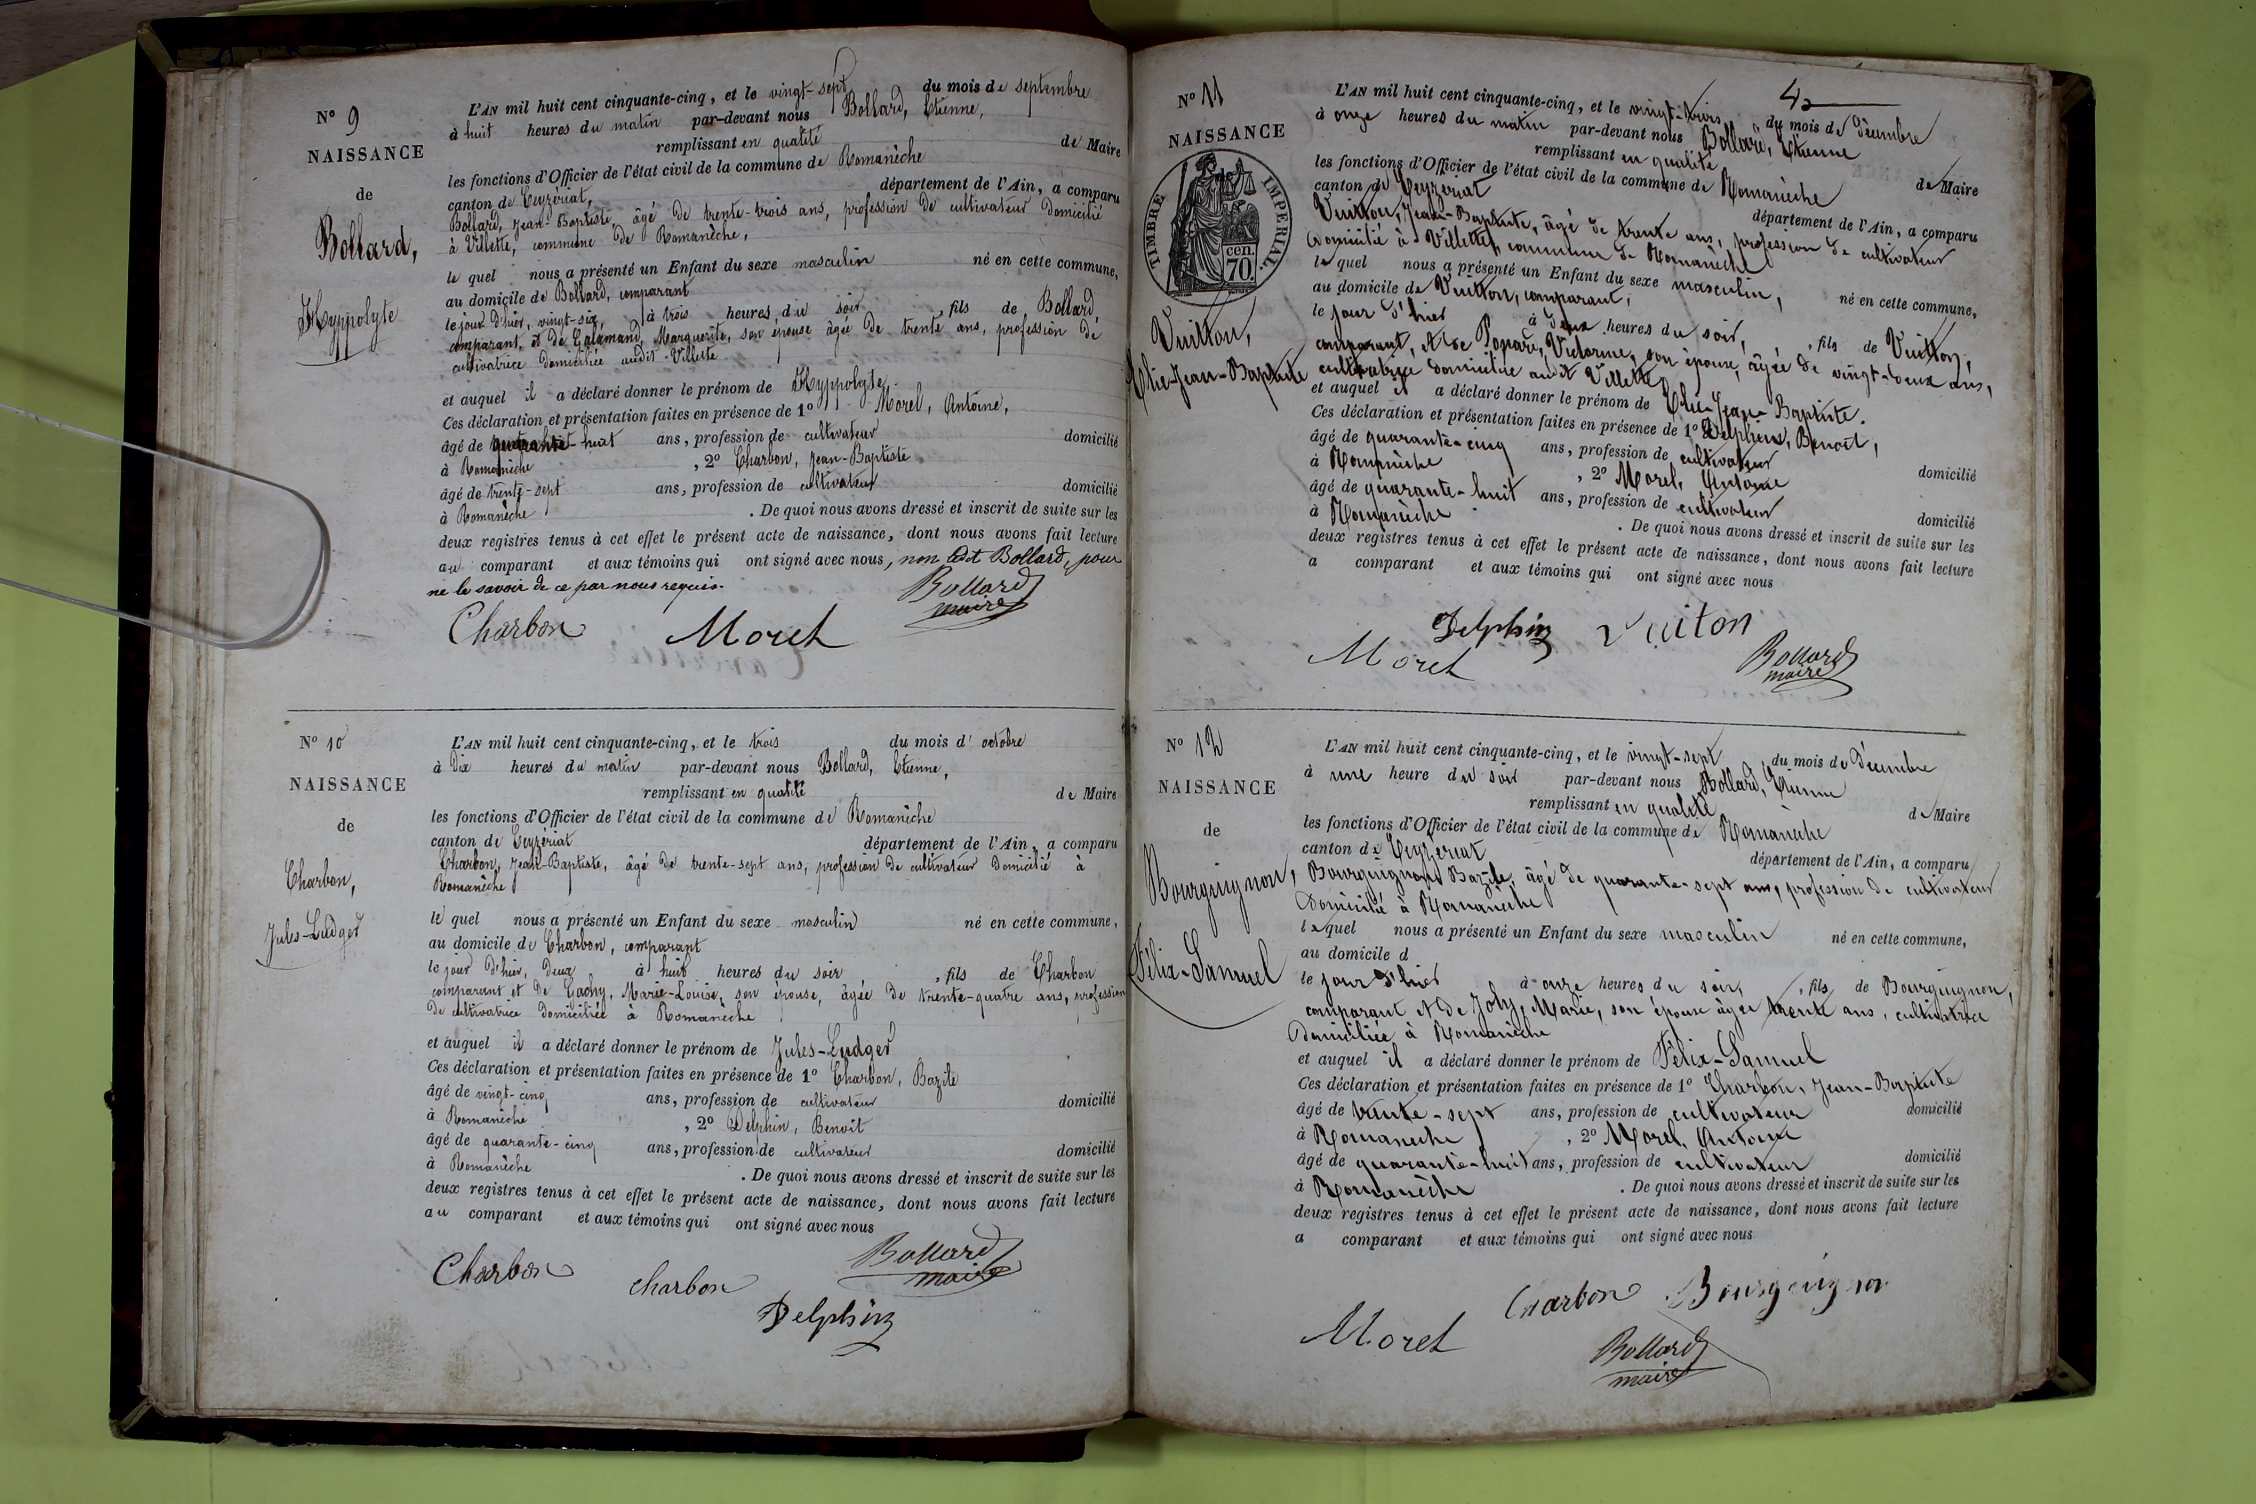 N° 9
NAISSANCE
de
Bollard,
Hyppolyte
L'AN mil huit cent cinquante-cinq, et le vingt-sept du mois de septembre
à huit heures du matin par-devant nous Bollard, Etienne,
remplissant en qualité de Maire
les fonctions d'Officier de l'état civil de la commune de Romanèche
canton de Ceyzériat, département de l'Ain, a comparu
Bollard, Jean-Baptiste, âgé de trente-trois ans, profession de cultivateur domicilié
à Villette, commune de Romanèche,
le quel nous a présenté un Enfant du sexe masculin né en cette commune,
au domicile de Bollard, comparant
le jour d'hier, vingt-six, à trois heures du soir, fils de Bollard,
comparant, et de Calamand, Marguerite, son épouse âgée de trente ans, profession de
cultivatrice domiciliée audit Villette
et auquel il a déclaré donner le prénom de Hyppolyte.
Ces déclaration et présentation faites en présence de 1° Morel, Antoine,
âgé de quarante-huit ans, profession de cultivateur domicilié
à Romanèche, 2° Charbon, Jean-Baptiste
âgé de trente-sept ans, profession de cultivateur domicilié
à Romanèche. De quoi nous avons dressé et inscrit de suite sur les
deux registres tenus à cet effet le présent acte de naissance, dont nous avons fait lecture
au comparant et aux témoins qui ont signé avec nous, non ledit Bollard, pour
ne le savoir de ce par nous requis.
Bollard
maire
Charbon Morel
N° 10
NAISSANCE
de
Charbon,
Jules-Ludger
L'AN mil huit cent cinquante-cinq, et le trois du mois d'octobre
à dix heures du matin par-devant nous Bollard, Etienne,
remplissant en qualité de Maire
les fonctions d'Officier de l'état civil de la commune de Romanèche
canton de Ceyzériat département de l'Ain, a comparu
Charbon, Jean-Baptiste, âgé de trente-sept ans, profession de cultivateur domicilié à
Romanèche
le quel nous a présenté un Enfant du sexe masculin né en cette commune,
au domicile de Charbon, comparant
le jour d'hier, deux à huit heures du soir, fils de Charbon
comparant et de Marie-Louise, son épouse, âgée de trente-quatre ans, profession
de cultivatrice domiciliée à Romanèche
et auquel il a déclaré donner le prénom de Jules-Ludger
Ces déclaration et présentation faites en présence de 1° Charbon, Bazile
âgé de vingt-cinq ans, profession de cultivateur domicilié
à Romanèche, 2° Delphin, Benoît
âgé de quarante-cinq ans, profession de cultivateur domicilié
à Romanèche. De quoi nous avons dressé et inscrit de suite sur les
deux registres tenus à cet effet le présent acte de naissance, dont nous avons fait lecture
au comparant et aux témoins qui ont signé avec nous
Bollard
maire
Charbon charbon
Delphin
N° 11
NAISSANCE
TIMBRE IMPERIAL.
cen.
70
Vuitton,
Elie-Jean-Baptiste
L'AN mil huit cent cinquante-cinq, et le vingt-trois du mois de décembre
à onze heures du matin par-devant nous Bollard, Etienne
remplissant en qualité de Maire
les fonctions d'Officier de l'état civil de la commune de Romanèche
canton de Ceyzeriat département de l'Ain, a comparu
Vuitton, Jean-Baptiste, âgé de trente ans, profession de cultivateur
domicilié à Villette, commune de Romanèche
le quel nous a présenté un Enfant du sexe masculin, né en cette commune,
au domicile de Vuitton, comparant,
le jour d'hier à deux heures du soir, fils de Vuitton,
comparant, et de Victorine, son épouse, âgée de vingt-deux ans,
cultivatrice domiciliée audit Villette
et auquel il a déclaré donner le prénom de Elie-Jean-Baptiste.
Ces déclaration et présentation faites en présence de 1° Delphin, Benoît,
âgé de quarante-cinq ans, profession de cultivateur domicilié
à Romanèche, 2° Morel, Antoine
âgé de quarante-huit ans, profession de cultivateur domicilié
à Romanèche. De quoi nous avons dressé et inscrit de suite sur les
deux registres tenus à cet effet le présent acte de naissance, dont nous avons fait lecture
a comparant et aux témoins qui ont signé avec nous
Delphin Vuiton
Morel Bollard
maire
N° 12
NAISSANCE
de
Bourguignon,
Félix-Samuel
L'AN mil huit cent cinquante-cinq, et le vingt-sept du mois de décembre
à une heure du soir par-devant nous Bollard, Etienne
remplissant en qualité de Maire
les fonctions d'Officier de l'état civil de la commune de Romanèche
canton de Ceyzeriat département de l'Ain, a comparu
Bourguignon, Bazile, âgé de quarante-sept ans, profession de cultivateur
domicilié à Romanèche
le quel nous a présenté un Enfant du sexe masculin né en cette commune,
au domicile d
le jour d'hier à onze heures du soir, fils de Bourguignon,
comparant et de Joly, Marie, son épouse âgée trente ans, cultivatrice
domiciliée à Romanèche
et auquel il a déclaré donner le prénom de Félix-Samuel
Ces déclaration et présentation faites en présence de 1° Charbon, Jean-Baptiste
âgé de trente-sept ans, profession de cultivateur domicilié
à Romanèche, 2° Morel, Antoine
âgé de quarante-huit ans, profession de cultivateur domicilié
à Romanèche. De quoi nous avons dressé et inscrit de suite sur les
deux registres tenus à cet effet le présent acte de naissance, dont nous avons fait lecture
a comparant et aux témoins qui ont signé avec nous
Charbon Bourguignon
Morel Bollard
maire